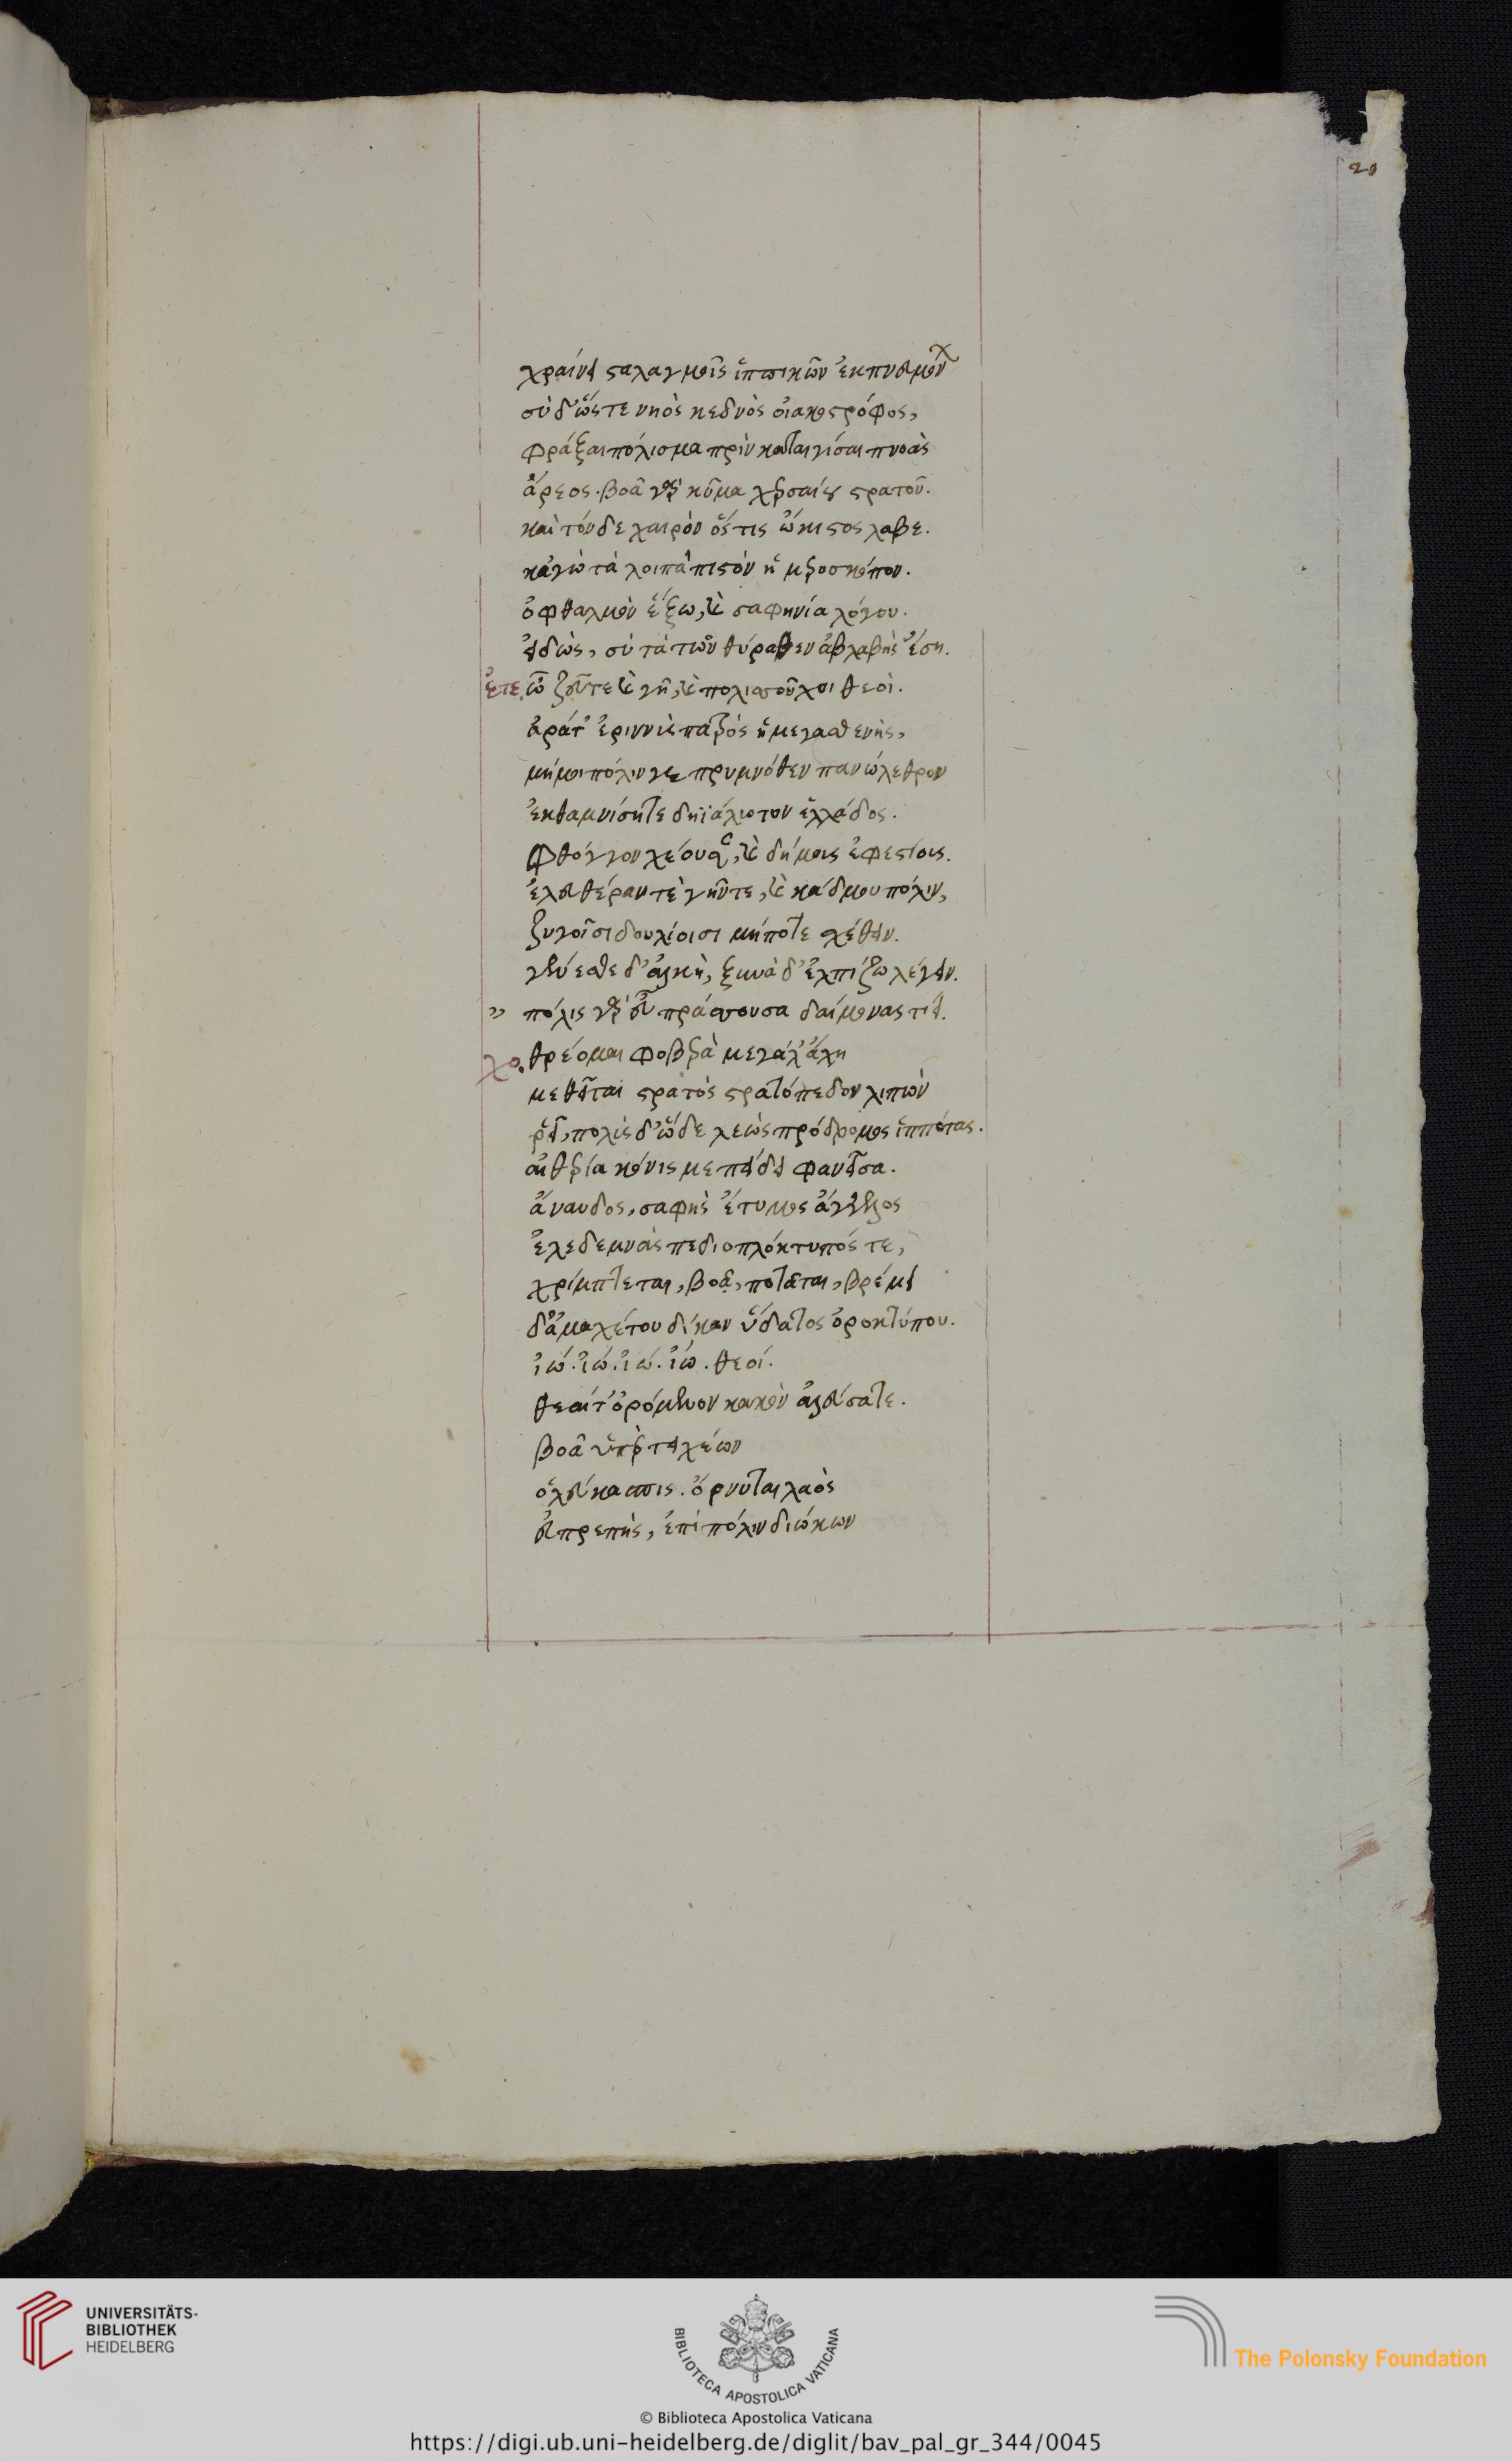 20
χραίνει σταλαγμοῖς ἱππικῶν ἐκ πνευμόνων
σὺ δ' ὥστε νηὸς κεδνὸς οἰακοστρόφος,
φράξαι πόλισμα πρὶν καταιγίσαι πνοὰς
ἄρεος. βοᾶ γὰρ κῦμα χερσαίου στρατοῦ.
καὶ τόνδε καιρὸν ὅστις ὤκιστος λαβέ.
κἀγὼ τὰ λοιπὰ πιστὸν ἡμεροσκόπον.
ὀφθαλμὸν ἕξω, καὶ σαφηνία λόγου.
εἰδὼς, σὺ τὰ τῶν θύραθεν ἀβλαβὴς ἔση.
ἐτε. ὦ ζεῦ τε καὶ γῆ, καὶ πολισσοῦχοι θεοὶ.
ἀρά τ' ἐριννὺς πατρὸς ἡ μεγασθενὴς,
μή μοι πόλιν γε πρυμνόθεν πανώλεθρον
ἐκθαμνίσητε δηϊάλωτον ἑλλάδος.
φθόγγον χέουσαν, καὶ δόμοις ἐφεστίοις.
ἐλευθέραν τὲ γῆν τε, καὶ κάδμου πόλιν,
ζυγοῖσι δουλίοισι μήποτε σχέθειν.
γένεσθε δ' ἀλκὴ, ξυνὰ δ' ἐλπίζω λέγειν.
πόλις γὰρ εὖ πράσσουσα δαίμονας τίει.
χο. θρέομαι φοβερὰ μεγάλ' ἄχη
μεθεῖται στρατὸς στρατόπεδον λιπὼν
ῥεῖ, πολὺς δ' ὧδε λεὼς πρόδρομος ἱππότας.
αἰθερία κόνις με πείθει φανεῖσα.
ἄναυδος, σαφὴς ἔτυμος ἄγγελος
ἑλεδεμνὰς πεδιοπλόκτυπός τε,
χρίμπτεται, βοᾷ, ποτᾶται, βρέμει
δ' ἀμαχέτου δίκαν ὕδατος ὀροκτύπου.
ἰώ. ἰώ. ἰώ. ἰώ. θεοί.
θεαί τ' ὀρόμενον κακὸν ἀλεύσατε.
βοᾶ ὑπὲρ τειχέων
ὁ λεύκασπις. ὄρνυται λαὸς
εὐπρεπὴς, ἐπὶ πόλιν διώκων
UNIVERSITÄTS-
BIBLIOTHEK
HEIDELBERG
BIBLIOTECA APOSTOLICA VATICANA
The Polonsky Foundation
© Biblioteca Apostolica Vaticana
https://digi.ub.uni-heidelberg.de/diglit/bav_pal_gr_344/0045